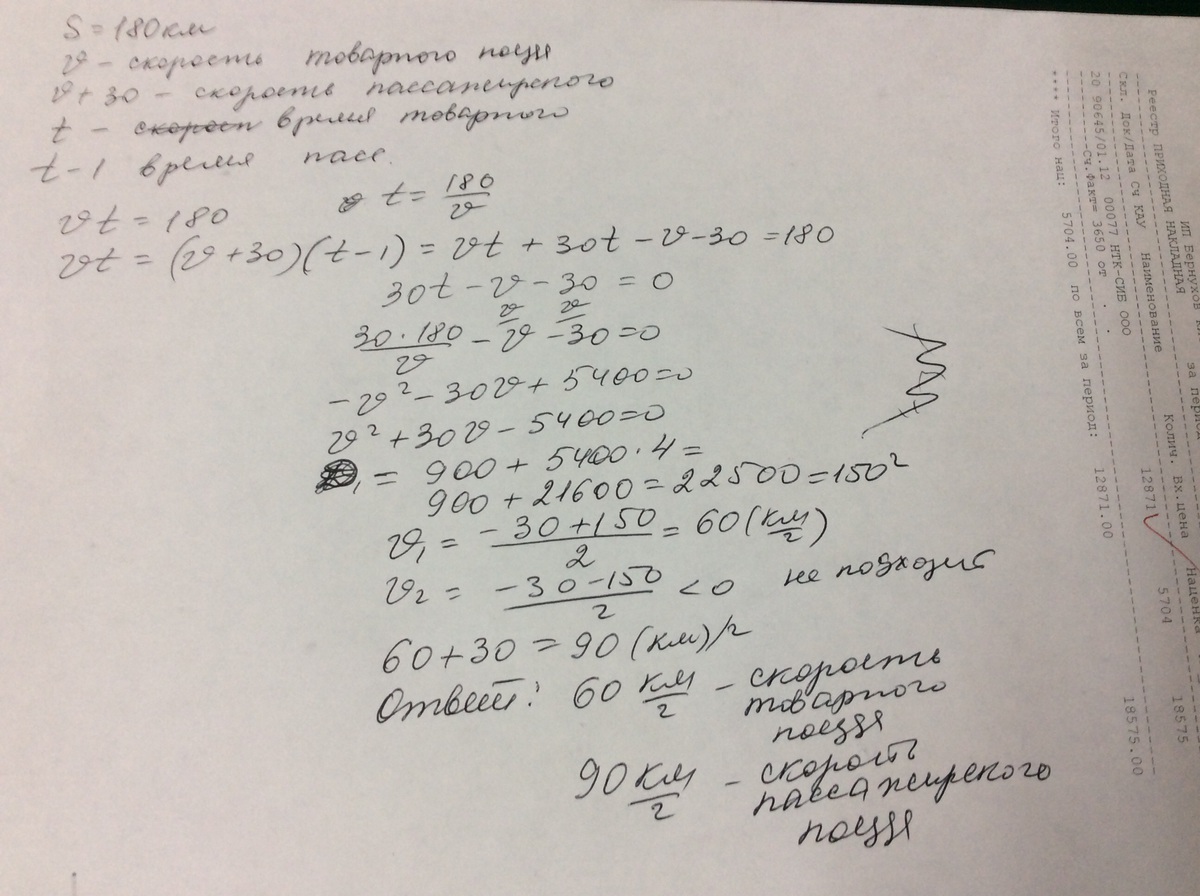 S = 180 км
v - скорость товарного поезд
v + 30 - скорость пассажирского
t - скорост время товарного
t - 1 время пасс.
vt = 180
t = 180/v
vt = (v+30)(t-1) = vt + 30t - v - 30 = 180
30t - v - 30 = 0
30·180/v - v - 30 = 0
v v
-v² - 30v + 5400 = 0
v² + 30v - 5400 = 0
= 900 + 5400·4 =
900 + 21600 = 22500 = 150²
v₁ = (-30+150)/2 = 60 (км/г)
v₂ = (-30-150)/2 < 0 не подходит
60 + 30 = 90 (км)/г
Ответ: 60 км/г - скорость
товарного
поезда
90 км/г - скорость
пассажирского
поезда
ИП Бернухов
за период
Реестр ПРИХОДНАЯ НАКЛАДНАЯ
Скл. Док/Дата Сч КАУ Наименование Колич. Вх.цена Наценка
20 90645/01.12 00077 НТК-СИБ ООО 12871 5704 18575
Сч.Факт= 3650 от . .
**** Итого нац: 5704.00 по всем за период: 12871.00 18575.00